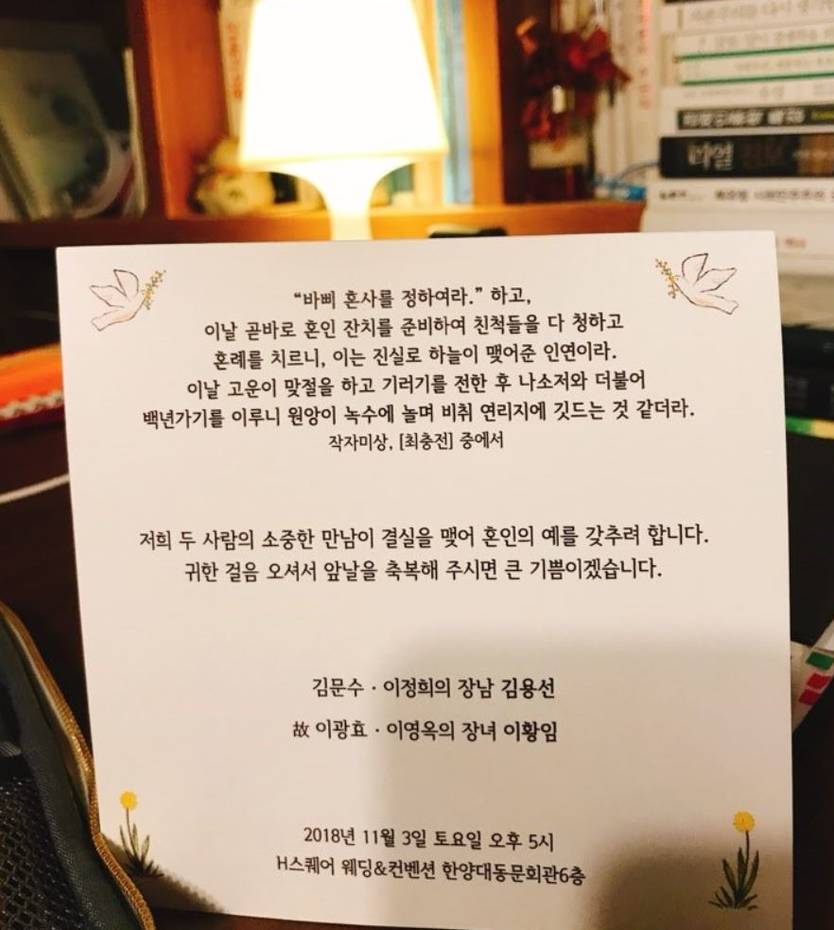 “바삐 혼사를 정하여라.” 하고,
이날 곧바로 혼인 잔치를 준비하여 친척들을 다 청하고
혼례를 치르니, 이는 진실로 하늘이 맺어준 인연이라.
이날 고운이 맞절을 하고 기러기를 전한 후 나소저와 더불어
백년가기를 이루니 원앙이 녹수에 놀며 비취 연리지에 깃드는 것 같더라.
작자미상, [최충전] 중에서
저희 두 사람의 소중한 만남이 결실을 맺어 혼인의 예를 갖추려 합니다.
귀한 걸음 오셔서 앞날을 축복해 주시면 큰 기쁨이겠습니다.
김문수 · 이정희의 장남 김용선
故 이광효 · 이영옥의 장녀 이황임
2018년 11월 3일 토요일 오후 5시
H스퀘어 웨딩&컨벤션 한양대동문회관6층